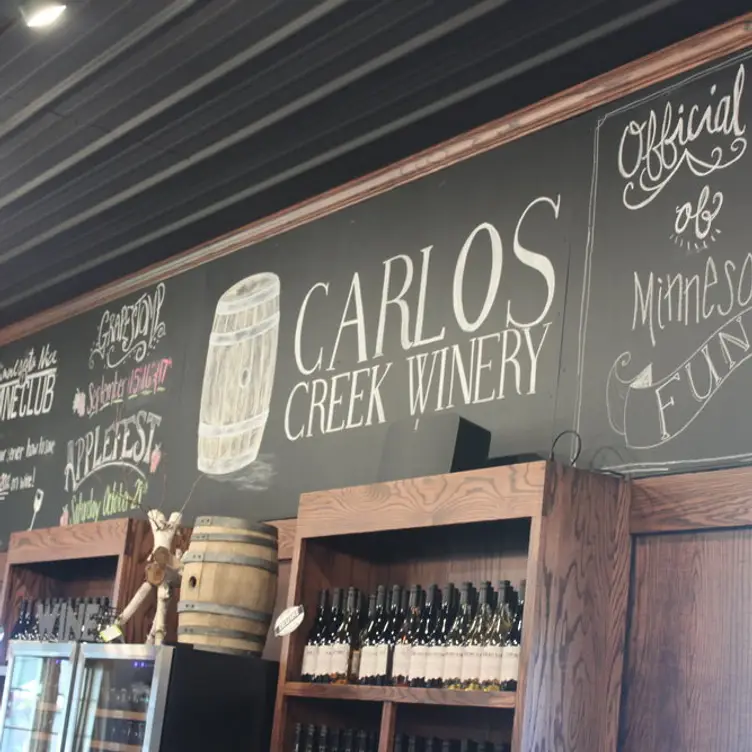 WINE CLUB
GRAPESTOMP
September 15, 16, 17
APPLEFEST
Saturday, October
CARLOS
CREEK WINERY
Official
of
Minneso
FUN
WINE